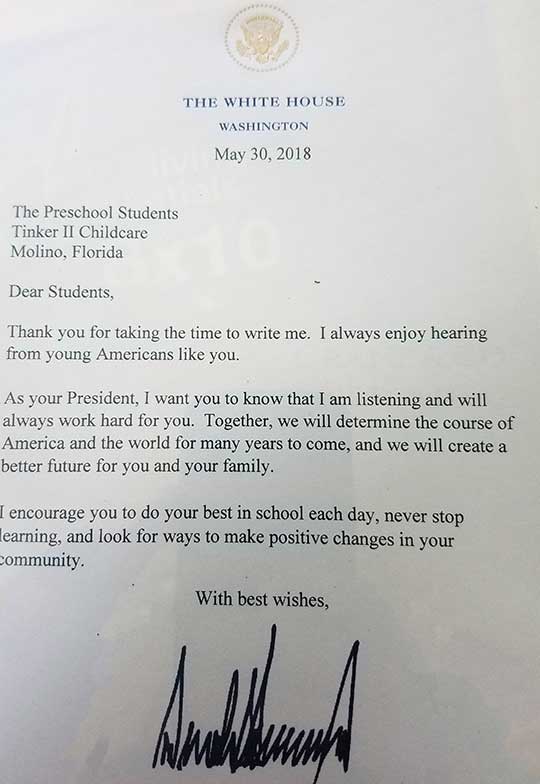 THE WHITE HOUSE
WASHINGTON
May 30, 2018
The Preschool Students
Tinker II Childcare
Molino, Florida
Dear Students,
Thank you for taking the time to write me. I always enjoy hearing
from young Americans like you.
As your President, I want you to know that I am listening and will
always work hard for you. Together, we will determine the course of
America and the world for many years to come, and we will create a
better future for you and your family.
I encourage you to do your best in school each day, never stop
learning, and look for ways to make positive changes in your
community.
With best wishes,